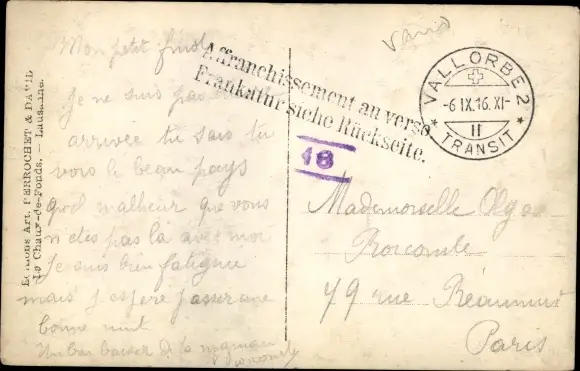 Mon petit
Je ne suis pas
arrivée tu sais tu
vois le beau pays
quel malheur que vous
n'etes pas là avec moi
Je suis bien fatiguée
mais j'espère passer une
bonne nuit
Un bon baiser de ta maman
Affranchissement au verso
Frankatur siehe Rückseite.
18
VALLORBE 2
-6 IX.16.XI-
II
TRANSIT
Mademoiselle Olga
79 rue Réaumur
Paris
Editions Art. PERROCHET & DAVID
La Chaux-de-Fonds. — Lausanne.